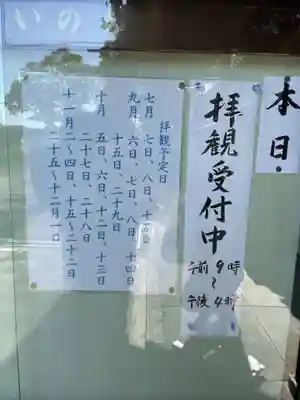 いの
本日
拝観受付中
午前9時
〜
午後4時
拝観予定日
七月 七日、八日、十
九月 六日、七日、八日、十四日
十五日、二十九日
十月 五日、六日、十二日、十三日
二十七日、二十八日
十一月 二〜四日、十五〜二十二日
二十五〜十二月一日